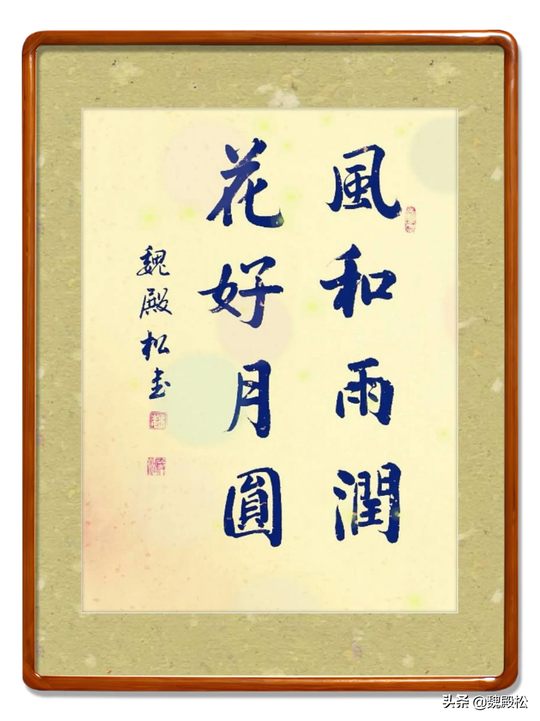 風和雨潤
花好月圓
魏殿松书
头条 @魏殿松